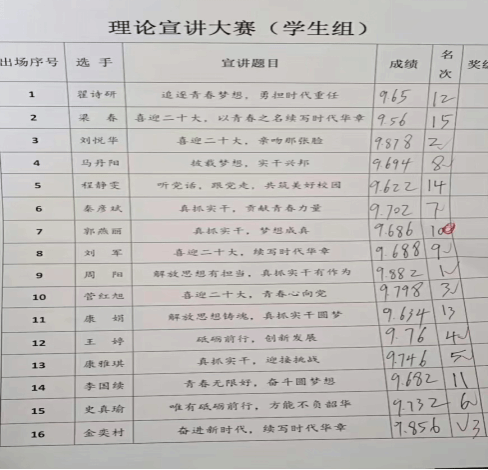 理论宣讲大赛（学生组）
出场序号 选手 宣讲题目 成绩 名次 奖
1 翟诗研 追逐青春梦想，勇担时代重任 9.65 12
2 梁春 喜迎二十大，以青春之名续写时代华章 9.56 15
3 刘悦华 喜迎二十大，亲吻那张脸 9.878 2
4 马丹阳 披载梦想，实干兴邦 9.694 8
5 程静雯 听党话，跟党走，共筑美好校园 9.622 14
6 秦彦斌 真抓实干，贡献青春力量 9.702 7
7 郭燕丽 真抓实干，梦想成真 9.686 10
8 刘军 喜迎二十大，续写时代华章 9.688 9
9 周阳 解放思想有担当，真抓实干有作为 9.882 1
10 营红旭 喜迎二十大，青春心向党 9.798 3
11 康娟 解放思想铸魂，真抓实干圆梦 9.634 13
12 王婷 砥砺前行，创新发展 9.76 4
13 康雅琪 真抓实干，迎接挑战 9.746 5
14 李国续 青春无限好，奋斗圆梦想 9.682 11
15 史真瑜 唯有砥砺前行，方能不负韶华 9.732 6
16 金奕村 奋进新时代，续写时代华章 9.856 3